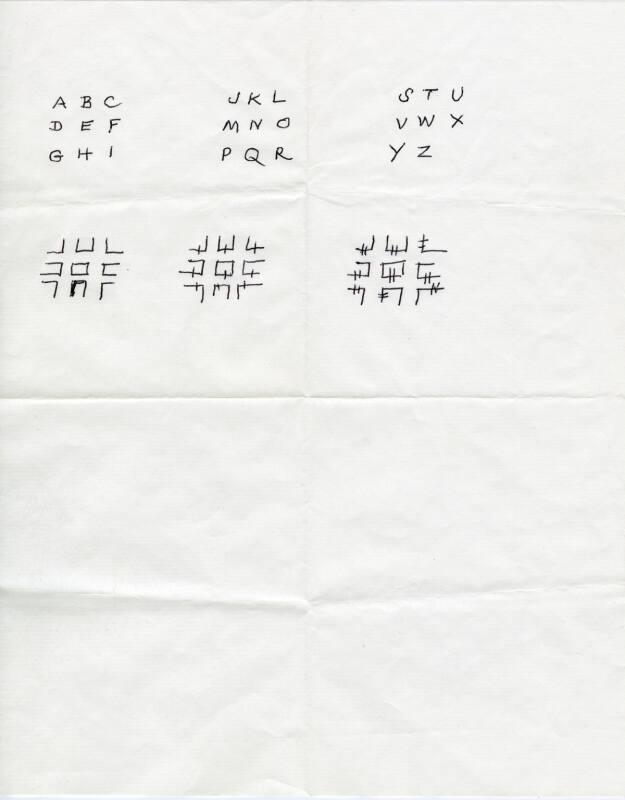 A B C
D E F
G H I
J K L
M N O
P Q R
S T U
V W X
Y Z